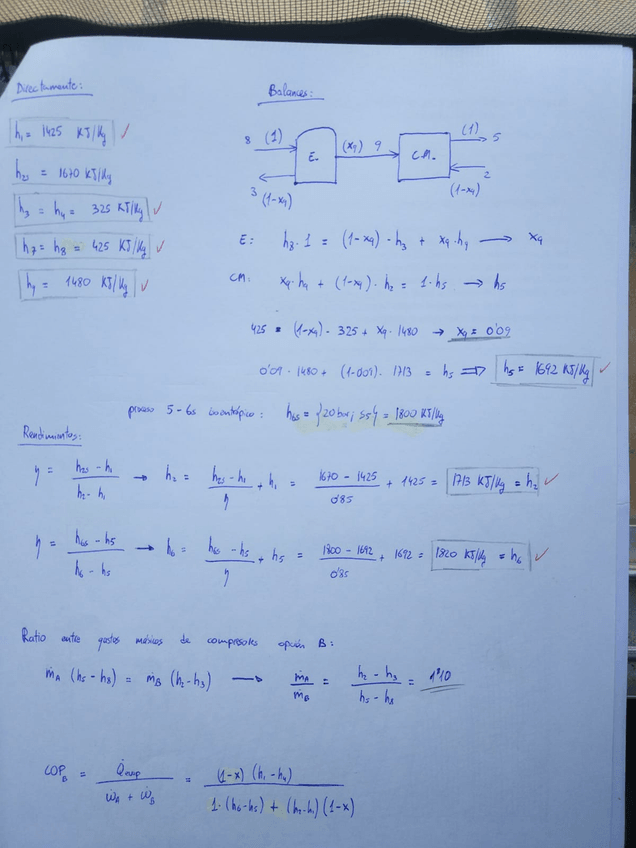 Directamente:
h₁ = 1425 KJ/Kg ✓
h₂s = 1670 KJ/Kg
h₃ = h₄ = 325 KJ/Kg ✓
h₇ = h₈ = 425 KJ/Kg ✓
h₉ = 1480 KJ/Kg ✓
Balances:
8 (1) E. (x₉) 9 C.M. (1) 5
3 (1-x₉) 2 (1-x₉)
E: h₈·1 = (1-x₉)·h₃ + x₉·h₉ → x₉
CM: x₉·h₉ + (1-x₉)·h₂ = 1·h₅ → h₅
425 = (1-x₉)·325 + x₉·1480 → x₉ = 0'09
0'09·1480 + (1-0'09)·1713 = h₅ ⇒ h₅ = 1692 KJ/Kg ✓
proceso 5-6s isentrópico: h₆s = {20 bar; s5} = 1800 KJ/Kg
Rendimientos:
η = (h₂s - h₁)/(h₂ - h₁) → h₂ = (h₂s - h₁)/η + h₁ = (1670 - 1425)/0'85 + 1425 = 1713 KJ/Kg = h₂ ✓
η = (h₆s - h₅)/(h₆ - h₅) → h₆ = (h₆s - h₅)/η + h₅ = (1800 - 1692)/0'85 + 1692 = 1820 KJ/Kg = h₆ ✓
Ratio entre gastos másicos de compresores opción B:
ṁA (h₅ - h₈) = ṁB (h₂ - h₃) → ṁA/ṁB = (h₂ - h₃)/(h₅ - h₈) = 1'10
COP_B = Q̇evap/(ẇA + ẇB) = (1-x)(h₁ - h₄)/(1·(h₆ - h₅) + (h₂ - h₁)(1-x))